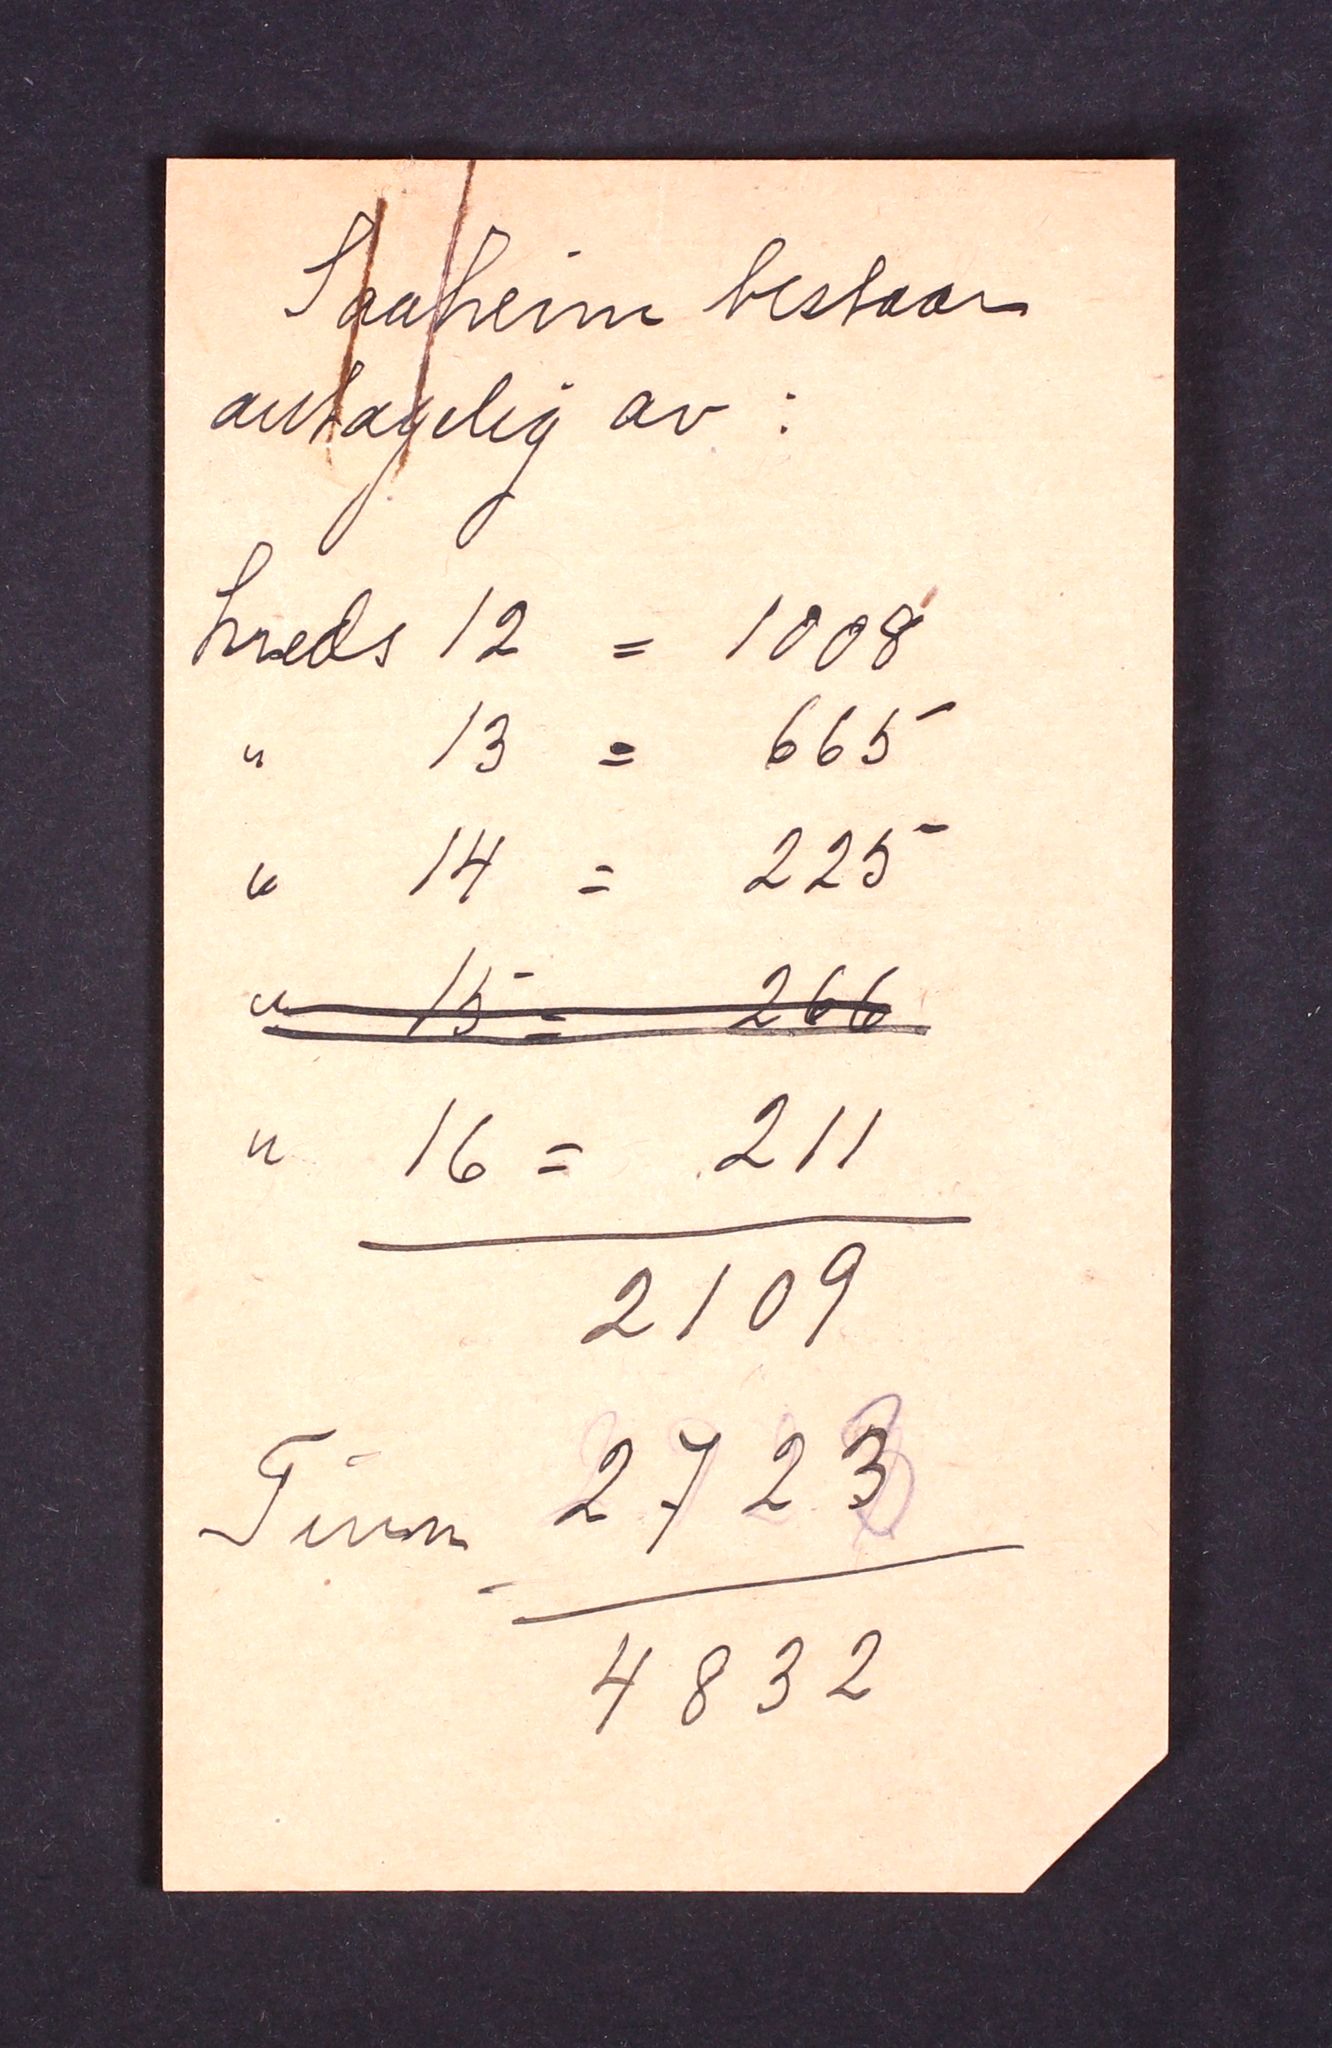 Saaheim bestaar
antagelig av :
kreds 12 = 1008
" 13 = 665
" 14 = 225
" 15 = 266
" 16 = 211
2109
Tinn 2723
4832